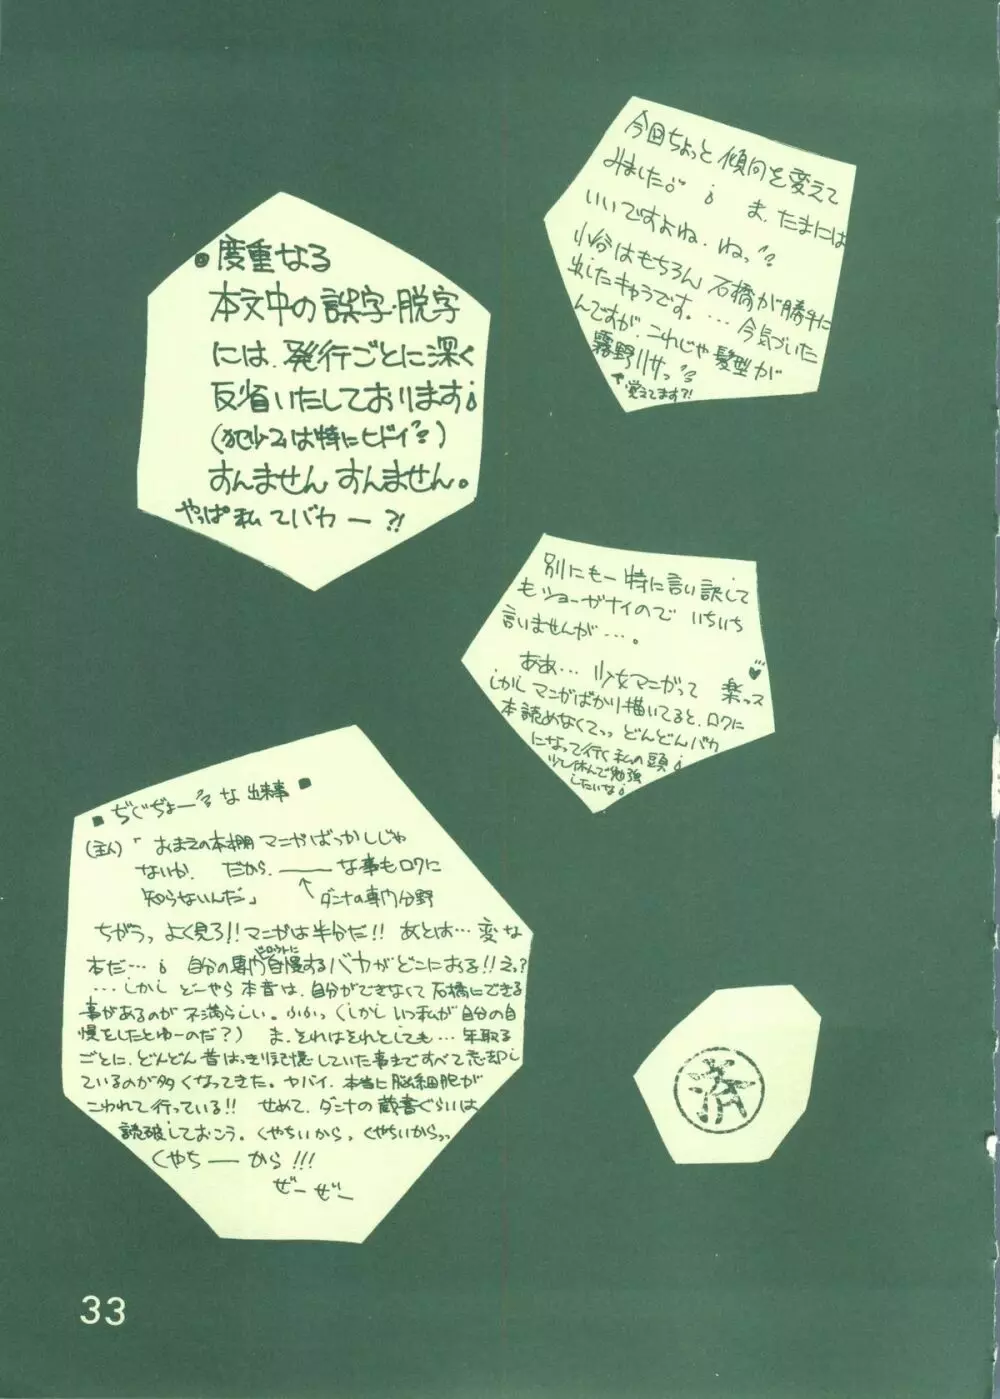 今回ちょっと傾向を変えて
みました。 ま、たまには
いいですよね、ねっ?
小谷はもちろん 石橋が勝手に
出したキャラです。… 今気づいた
んですが、これじゃ髪型が
霧野リサっ?
↑覚えてます?!
◎度重なる
本文中の誤字・脱字
には、発行ごとに深く
反省いたしております
は特にヒドイ?)
すんませんすんません。
やっぱ私ってバカー?!
別にもー特に言い訳して
もショーがナイので いちいち
言いませんが…。
ああ… 少女マンガって 楽っス♥
しかしマンガばかり描いてると、ロクに
本読めなくてっっ どんどんバカ
になって行く私の頭
少し休んで勉強
したいな
■ぢぐぢょー な出来事■
(主人)「おまえの本棚 マンガばっかしじゃ
ないか。 だから、――な事もロクに
知らないんだ」 ↑ダンナの専門分野
ちがうっ、よく見ろ!!マンガは半分だ!! あとは… 変な
本だ… 自分の専門自慢するバカがどこにおる!!えっ?
…しかし どーやら本音は、自分ができなくて石橋にできる
事があるのが不満らしい。ふふっ(しかしいつ私が自分の自
慢をしたとゆーのだ?) ま、それはそれとしても… 年取る
ごとに、どんどん昔はっきり記憶していた事まですべて忘却し
ているのが多くなってきた。ヤバイ、本当に脳細胞が
こわれて行っている!! せめて、ダンナの蔵書ぐらいは
読破しておこう。くやちいから、くやちいからっっ
くやちーから!!!
ぜーぜー
済
33